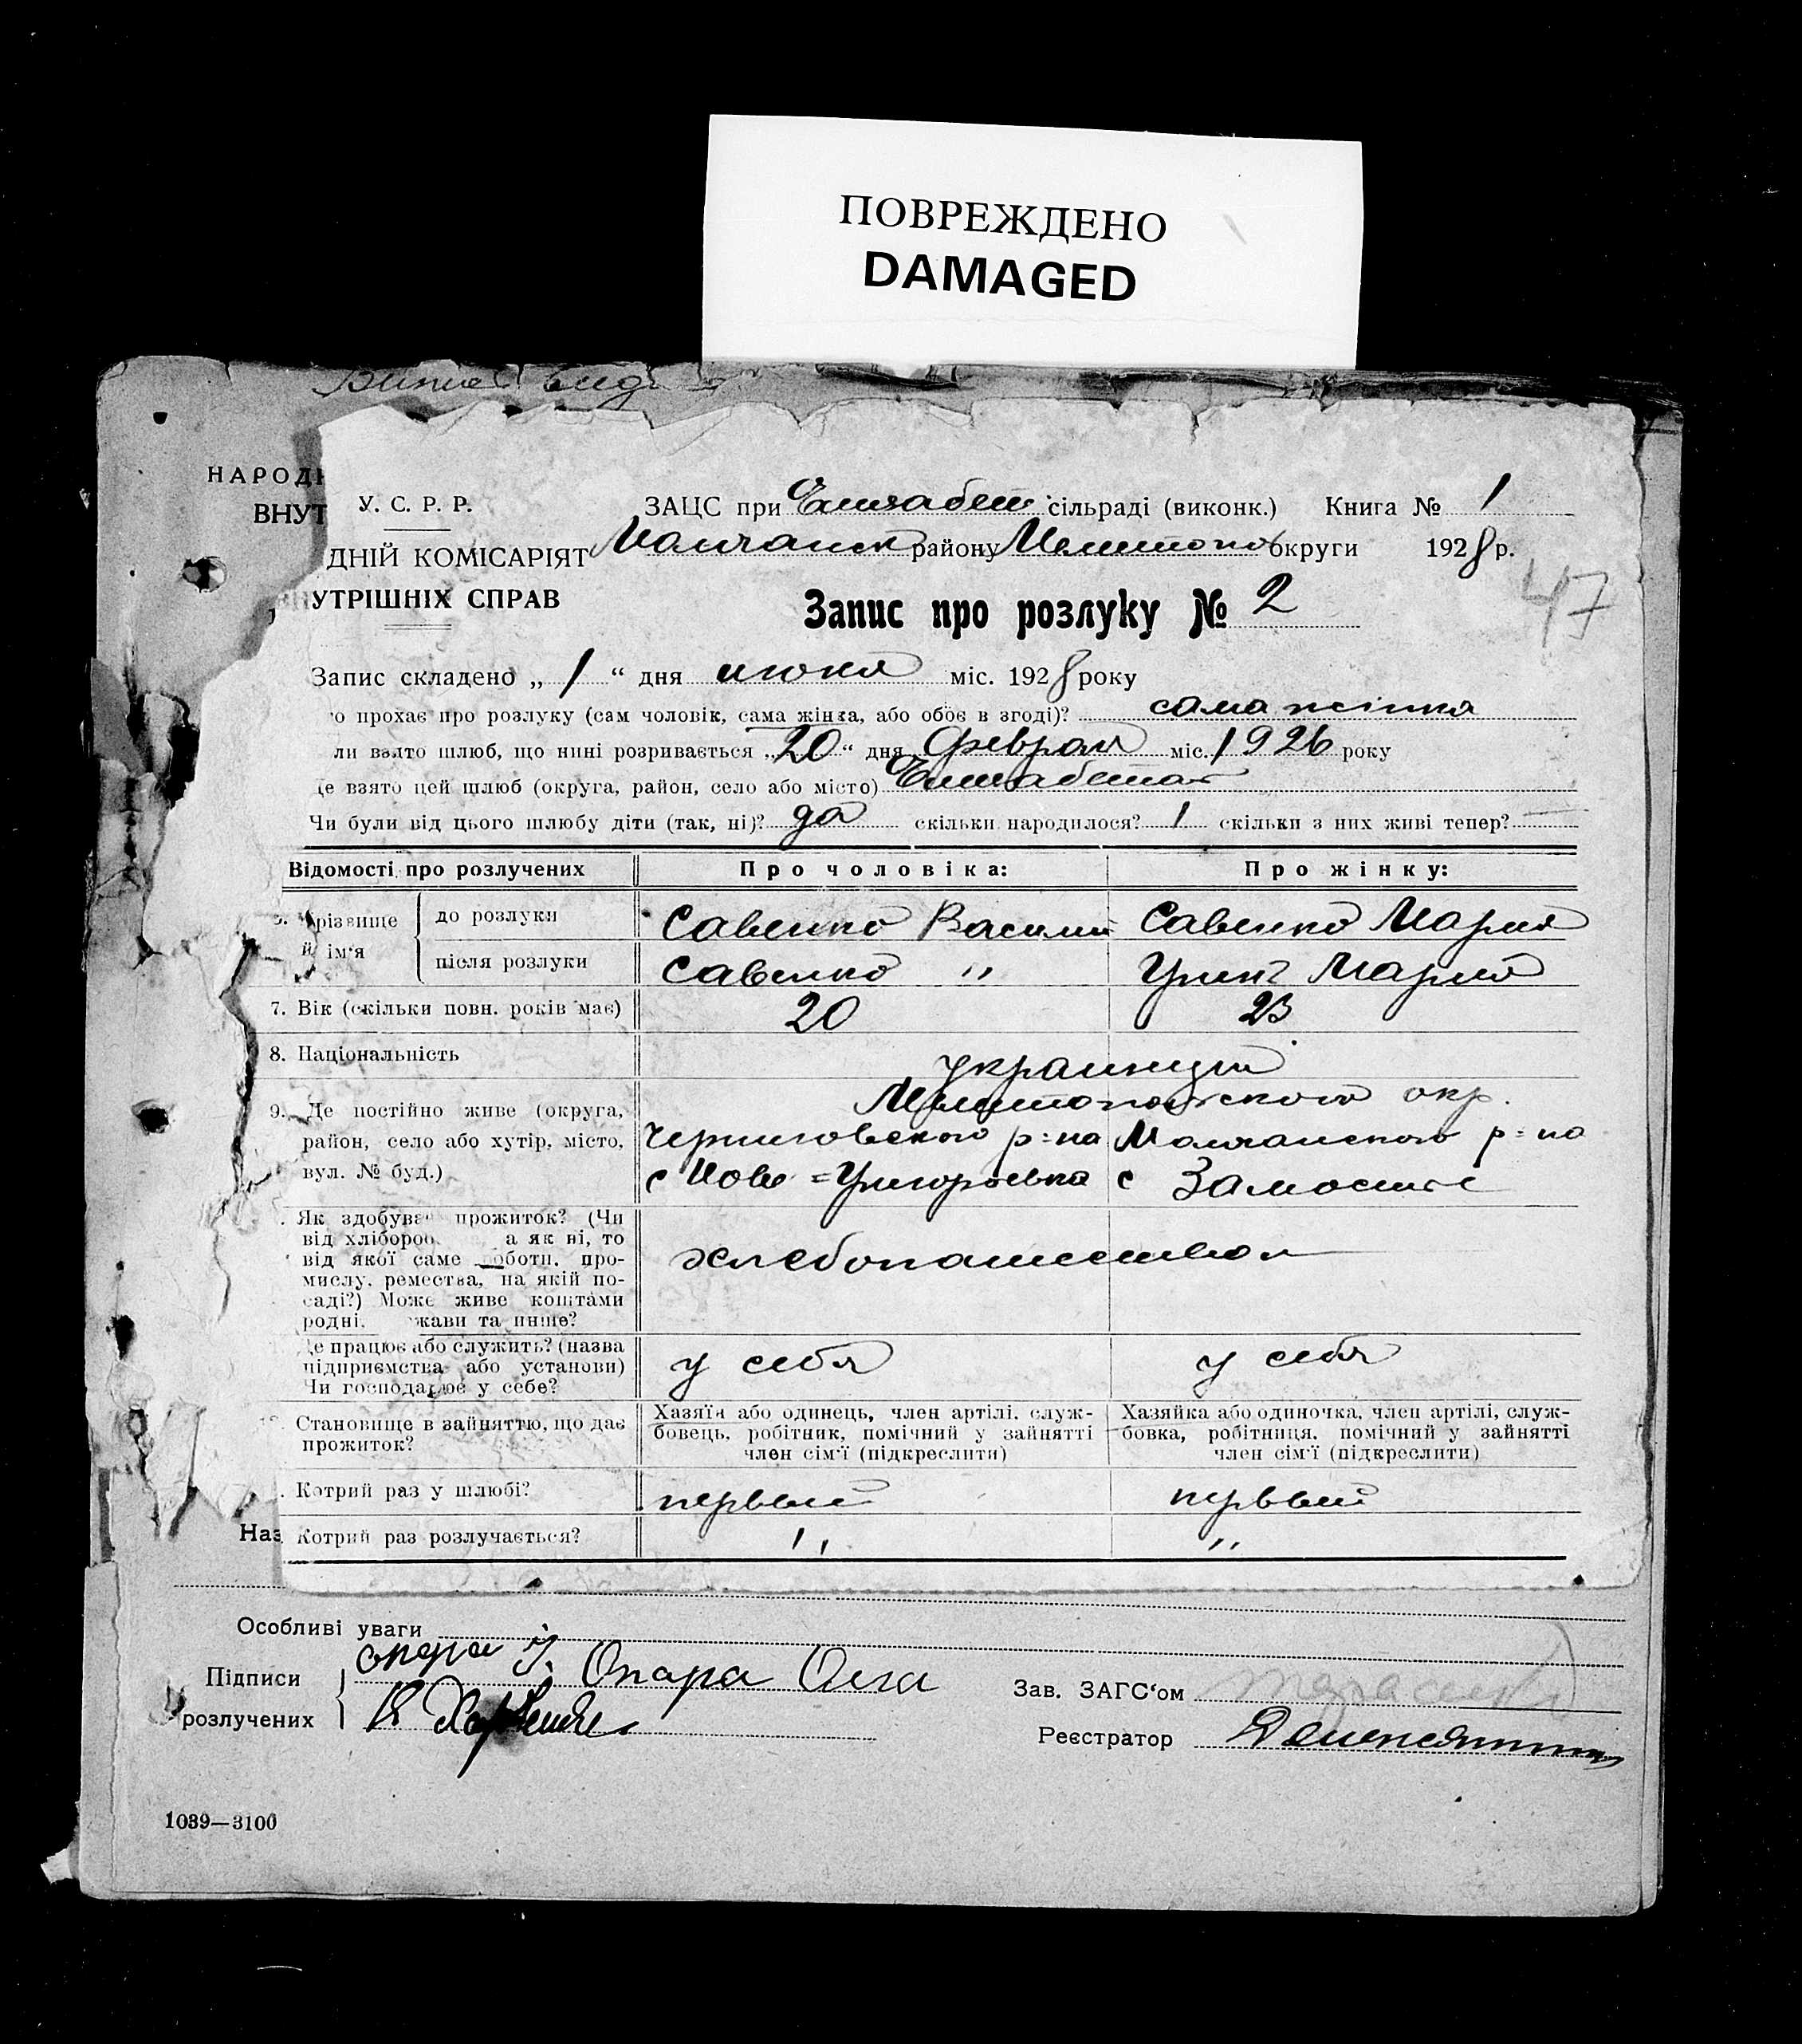 ПОВРЕЖДЕНО
DAMAGED
НАРОД
ВНУТ
У. С. Р. Р.
ЗАЦС при Елизабет сільраді (виконк.) Книга № 1
Молчанск району Мелитопо округи 1928 р.
ДНІЙ КОМІСАРІЯТ
УТРІШНІХ СПРАВ
47
Запис про розлуку № 2
Запис складено „ 1 “ дня июня міс. 1928 року
о прохає про розлуку (сам чоловік, сама жінка, або обоє в згоді)? сама жінка
ли взято шлюб, що нині розривається „ 20 “ дня феврал міс. 1926 року
де взято цей шлюб (округа, район, село або місто)
Чи були від цього шлюбу діти (так, ні)? да скільки народилося? 1 скільки з них живі тепер? —
Відомості про розлучених Про чоловіка: Про жінку:
різвище й ім'я
до розлуки Савенко Василий Савенко Мария
після розлуки Савенко " Мария
7. Вік (скільки повн. років має) 20 23
8. Національність украинцы
Мелитопольского окр.
9. Де постійно живе (округа,
район, село або хутір, місто,
вул. № буд.)
Черниговского р=на Молчанского р=на
с Ново=Григоровка с Замостье
Як здобува прожиток? (Чи
від хлібороб а як ні, то
від якої саме роботи, про-
мислу, ремества, на якій по-
саді?) Може живе коштами
родні, жави та инше?
хлебопашеством
Де працює або служить? (назва
підприємства або установи)
Чи господарює у себе?
у себя у себя
Становище в зайняттю, що дає
прожиток?
Хазяїн або одинець, член артілі, служ-
бовець, робітник, помічний у зайнятті
член сім'ї (підкреслити)
Хазяйка або одиночка, член артілі, служ-
бовка, робітниця, помічний у зайнятті
член сім'ї (підкреслити)
Котрий раз у шлюбі? первый первый
Наз
Котрий раз розлучається? " "
Особливі уваги
Підписи
розлучених
Опара Ольга
Зав. ЗАГС‘ом
Реєстратор
1039—3100